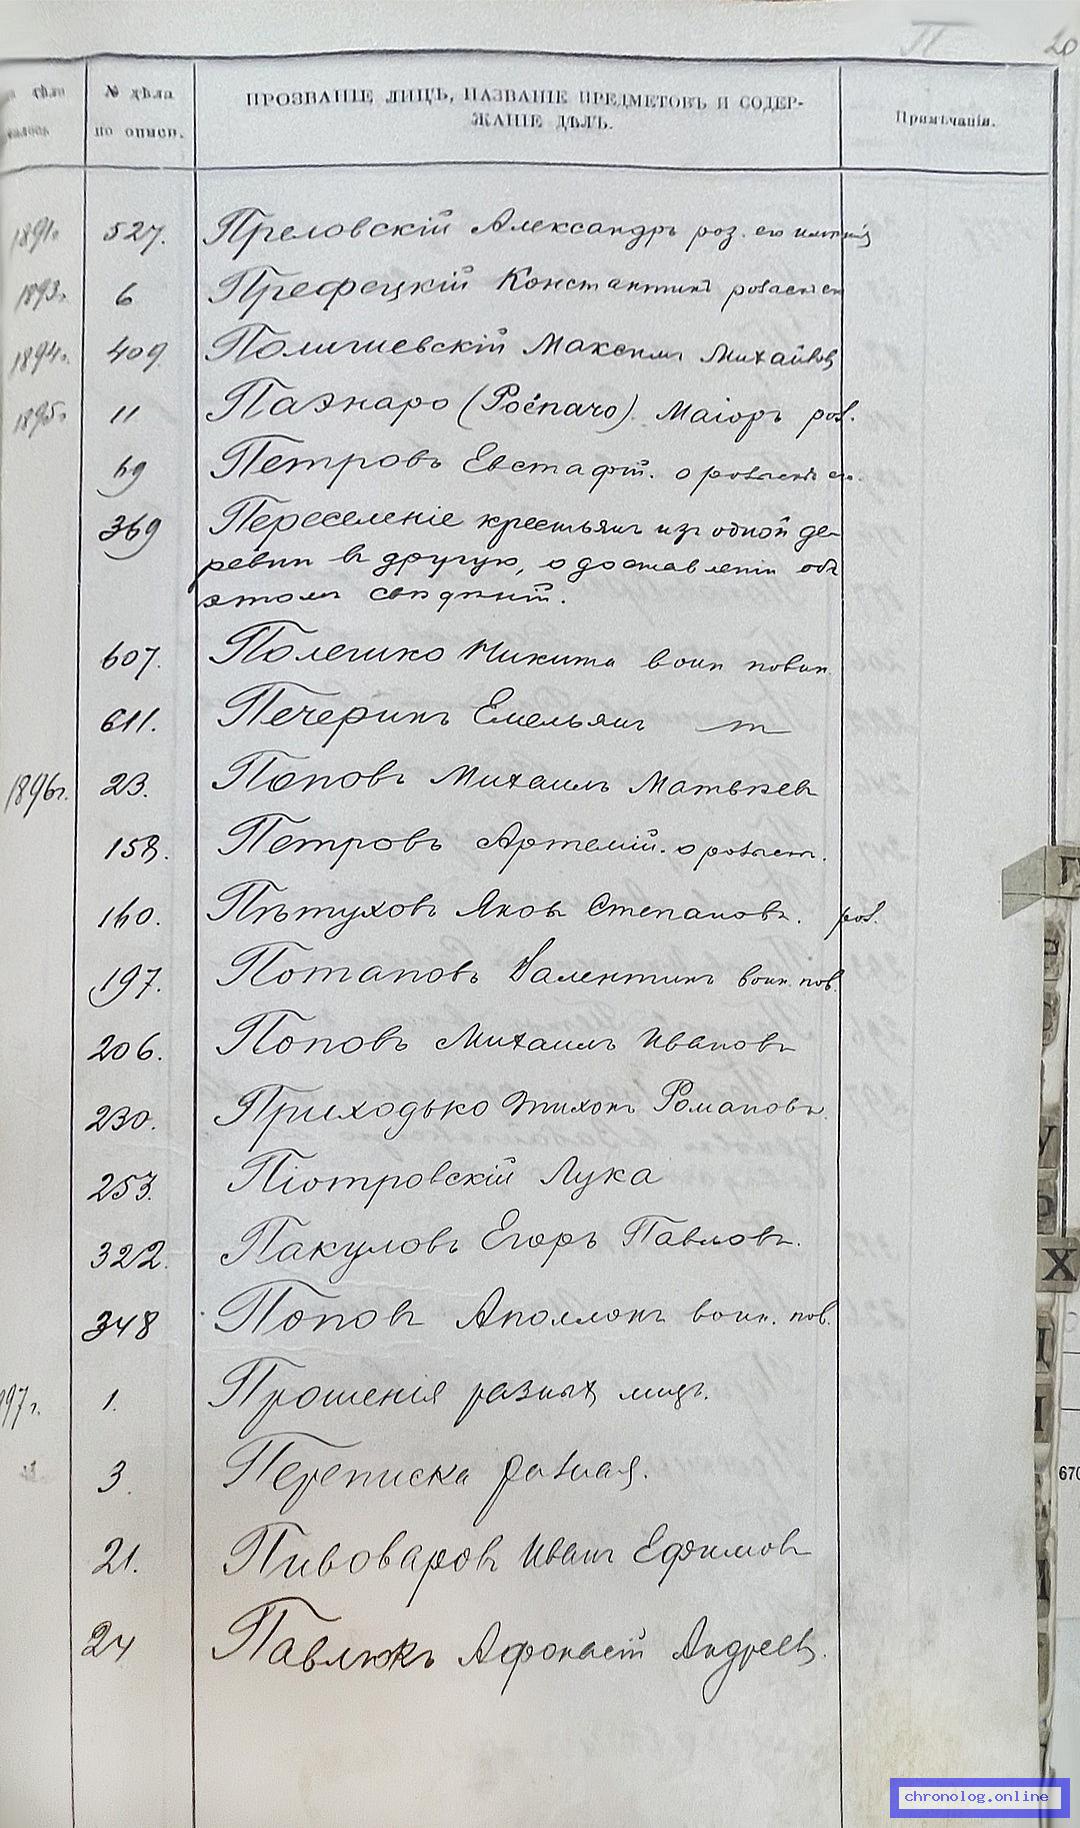 П 20
№ дѣла по описи.
ПРОЗВАНІЕ ЛИЦЪ, НАЗВАНІЕ ПРЕДМЕТОВЪ И СОДЕР-
ЖАНІЕ ДѢЛЪ.
Примѣчанія.
1891г. 527. Преловскій Александръ роз. его имѣнія
1893г. 6 Префецкій Константинъ
1894г. 409 Максимъ Михайлов
1895г. 11 Паэнаро Маіоръ роз.
69 Петровъ Евстафій. о розыскѣ его.
369 Переселеніе крестьянъ изъ одной де-
ревни въ другую, о доставленіи объ
этомъ свѣдѣній.
607. Полешко Никита воин повин.
611. Печеринъ Емельянъ
1896г. 23. Поповъ Михаилъ Матвѣевъ
158. Петровъ Артемій. о розыск.
160. Пѣтуховъ Яковъ Степановъ. роз.
197. Потаповъ Валентинъ воин. пов.
206. Поповъ Михаилъ Ивановъ
230. Приходько Тихонъ Романовъ.
253. Піотровскій Лука
322. Пакуловъ Егоръ Павловъ.
348 Поповъ Аполлонъ воин. пов.
97г. 1. Прошенія разныхъ лицъ.
3. Переписка разная.
21. Пивоваровъ Иванъ Ефимовъ
24 Павлюкъ Афонасій Андреев.
Г
У
Р
Х
670
chronolog.online